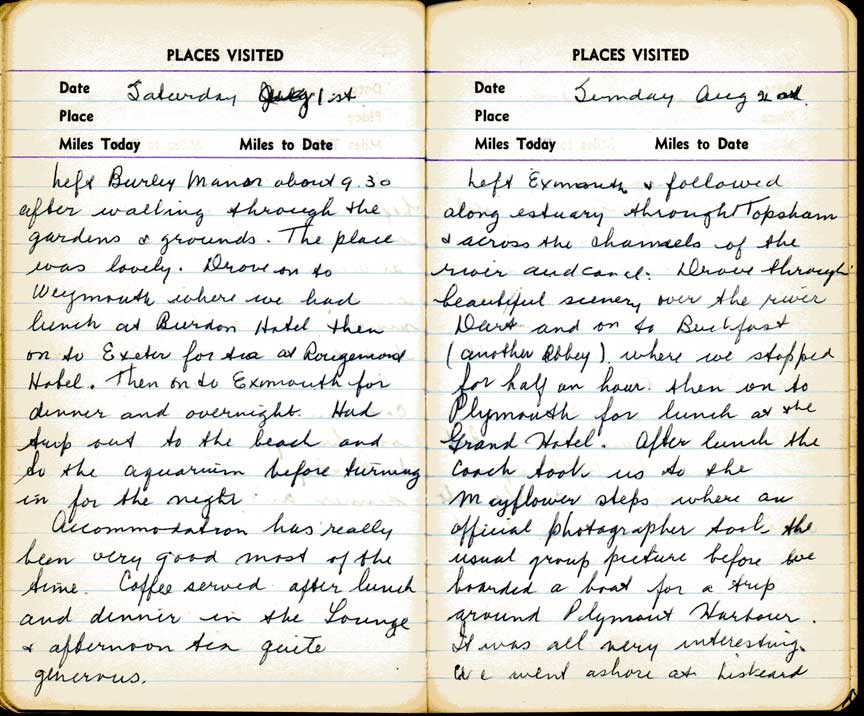 PLACES VISITED
Date Saturday July 1 st
Place
Miles Today Miles to Date
Left Burley Manor about 9.30
after walking through the
gardens & grounds. The place
was lovely. Drove on to
Weymouth where we had
lunch at Burdon Hotel then
on to Exeter for tea at Rougemond
Hotel. Then on to Exmouth for
dinner and overnight. Had
trip out to the beach and
to the aquarium before turning
in for the night.
Accommodation has really
been very good most of the
time. Coffee served after lunch
and dinner in the Lounge
& afternoon tea quite
generous.
PLACES VISITED
Date Sunday Aug 2
Place
Miles Today Miles to Date
Left Exmouth & followed
along estuary throught Topsham
& across the channels of the
river and canal. Drove through
beautiful scenery over the river
Dart and on to Buckfast
(another Abbey) where we stopped
for half an hour. then on to
Plymouth for lunch at the
Grand Hotel. After lunch the
coach took us to the
Mayflower steps where an
official photographer took the
usual group picture before we
boarded a boat for a trip
around Plymout Harbour.
It was all very interesting.
We went ashore at Liskeard